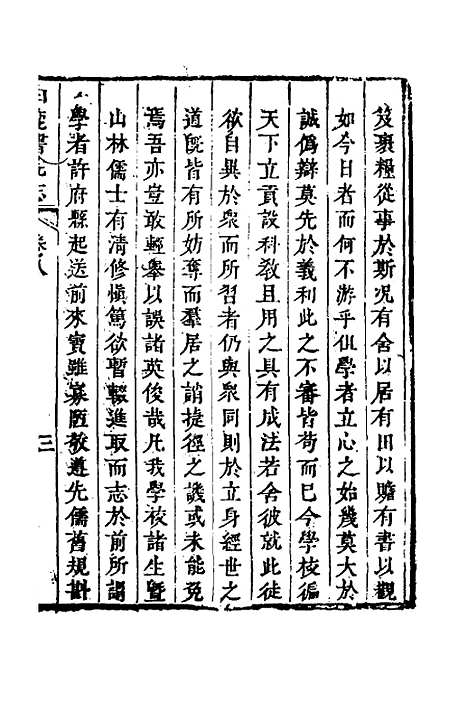 笈裹糧從事於斯况有舍以居有田以贍有書以觀
如今日者而何不游乎但學者立心之始幾莫大於
誠僞辯莫先於義利此之不審皆苟而已今學校徧
天下立貢設科敎且用之具有成法若舍彼就此徒
欲自異於衆而所習者仍與衆同則於立身經世之
道旣皆有所妨奪而羣居之誚捷徑之譏或未能免
焉吾亦豈敢輕舉以誤諸英俊哉凡我學校諸生曁
山林儒士有清修愼篤欲暫輟進取而志於前所謂
學者許府縣起送前來賓雖寡陋敬遵先儒舊規斟
白鹿書院志
卷八
三